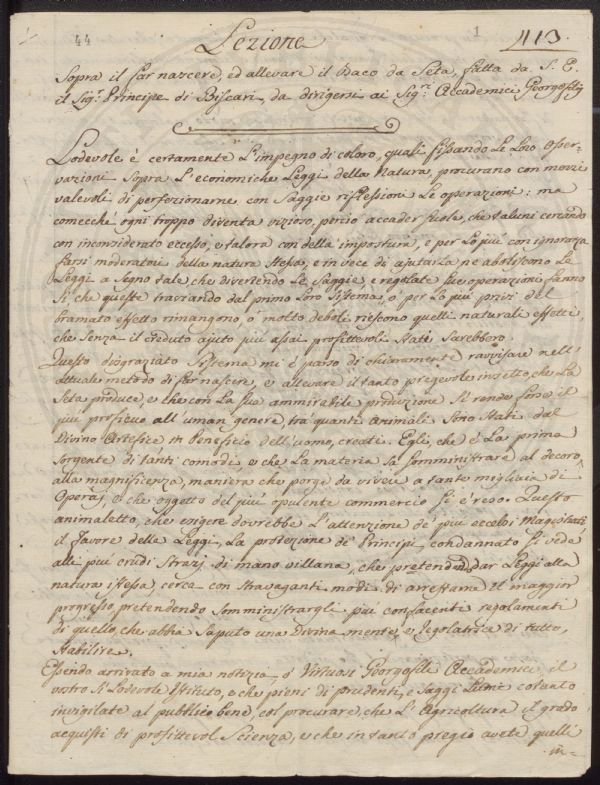 44
1
413.
Lezione
Sopra il far nascere, ed allevare il Baco da Seta, fatta da S. E.
il Sig.r Principe di Biscari, da dirigersi ai Sig.ri Accademici Georgofili
Lodevole è certamente L'impegno di coloro, quali fissando Le Loro osser-
vazioni Sopra L'economiche Leggi della Natura, procurano con mezzi
valevoli di perfezionarne con Saggie riflessioni Le operazioni: ma
comecchè ogni troppo diventa vizioso, perciò accader suole, che taluni cercando
con inconsiderato eccesso, e talora con della impostura, e per Lo più con ignoranza
farsi moderatori della natura stessa, e in vece di ajutarla ne aboliscono Le
Leggi a Segno tale che divertendo Le Saggie, e regolate Sue operazioni fanno
Sì che queste traviando dal primo Loro Sistema, o per Lo più privi del
bramato effetto rimangono, o molto deboli riescono quelli naturali effetti,
che Senza il creduto ajuto più assai profittevoli Stati Sarebbero.
Questo disgraziato Sistema mi è parso di chiaramente ravvisare nell'
attuale metodo di far nascere, e allevare il tanto pregevole insetto, che La
Seta produce, e che con La Sua ammirabile produzione Si rende forse il
più proficuo all'uman genere, tra quanti animali Sono Stati dal
Divino Artefice in beneficio dell'uomo, creati. Egli, che è La prima
Sorgente di tanti comodi, e che La materia Sa Somministrare al decoro,
alla magnificenza, maniera che porge da vivere a tante migliaia di
Operaj, e che oggetto del più opulente commercio Si è reso. Questo
animaletto, che esigere dovrebbe L'attenzione de' più eccelsi Magistrati,
il favore delle Leggi, La protezione de' Principi, condannato Si vede
alli più crudi Strazj di mano villana, che pretendendo dar Leggi alla
natura istessa, cerca con Stravaganti modi di arrestarne il maggior
progresso, pretendendo Somministrargli più confacenti regolamenti
di quello, che abbia Saputo una Divina mente, e regolatrice di tutto,
Stabilire.
Essendo arrivato a mia notizia, o Virtuosi Georgofili Accademici il
vostro Sì Lodevole Istituto, e che pieni di prudenti, e Saggi Lumi cotanto
invigilate al pubblico bene, col procurare, che L'Agricoltura il grado
acquisti di profittevol Scienza, e che in tanto pregio avete quelli
in-